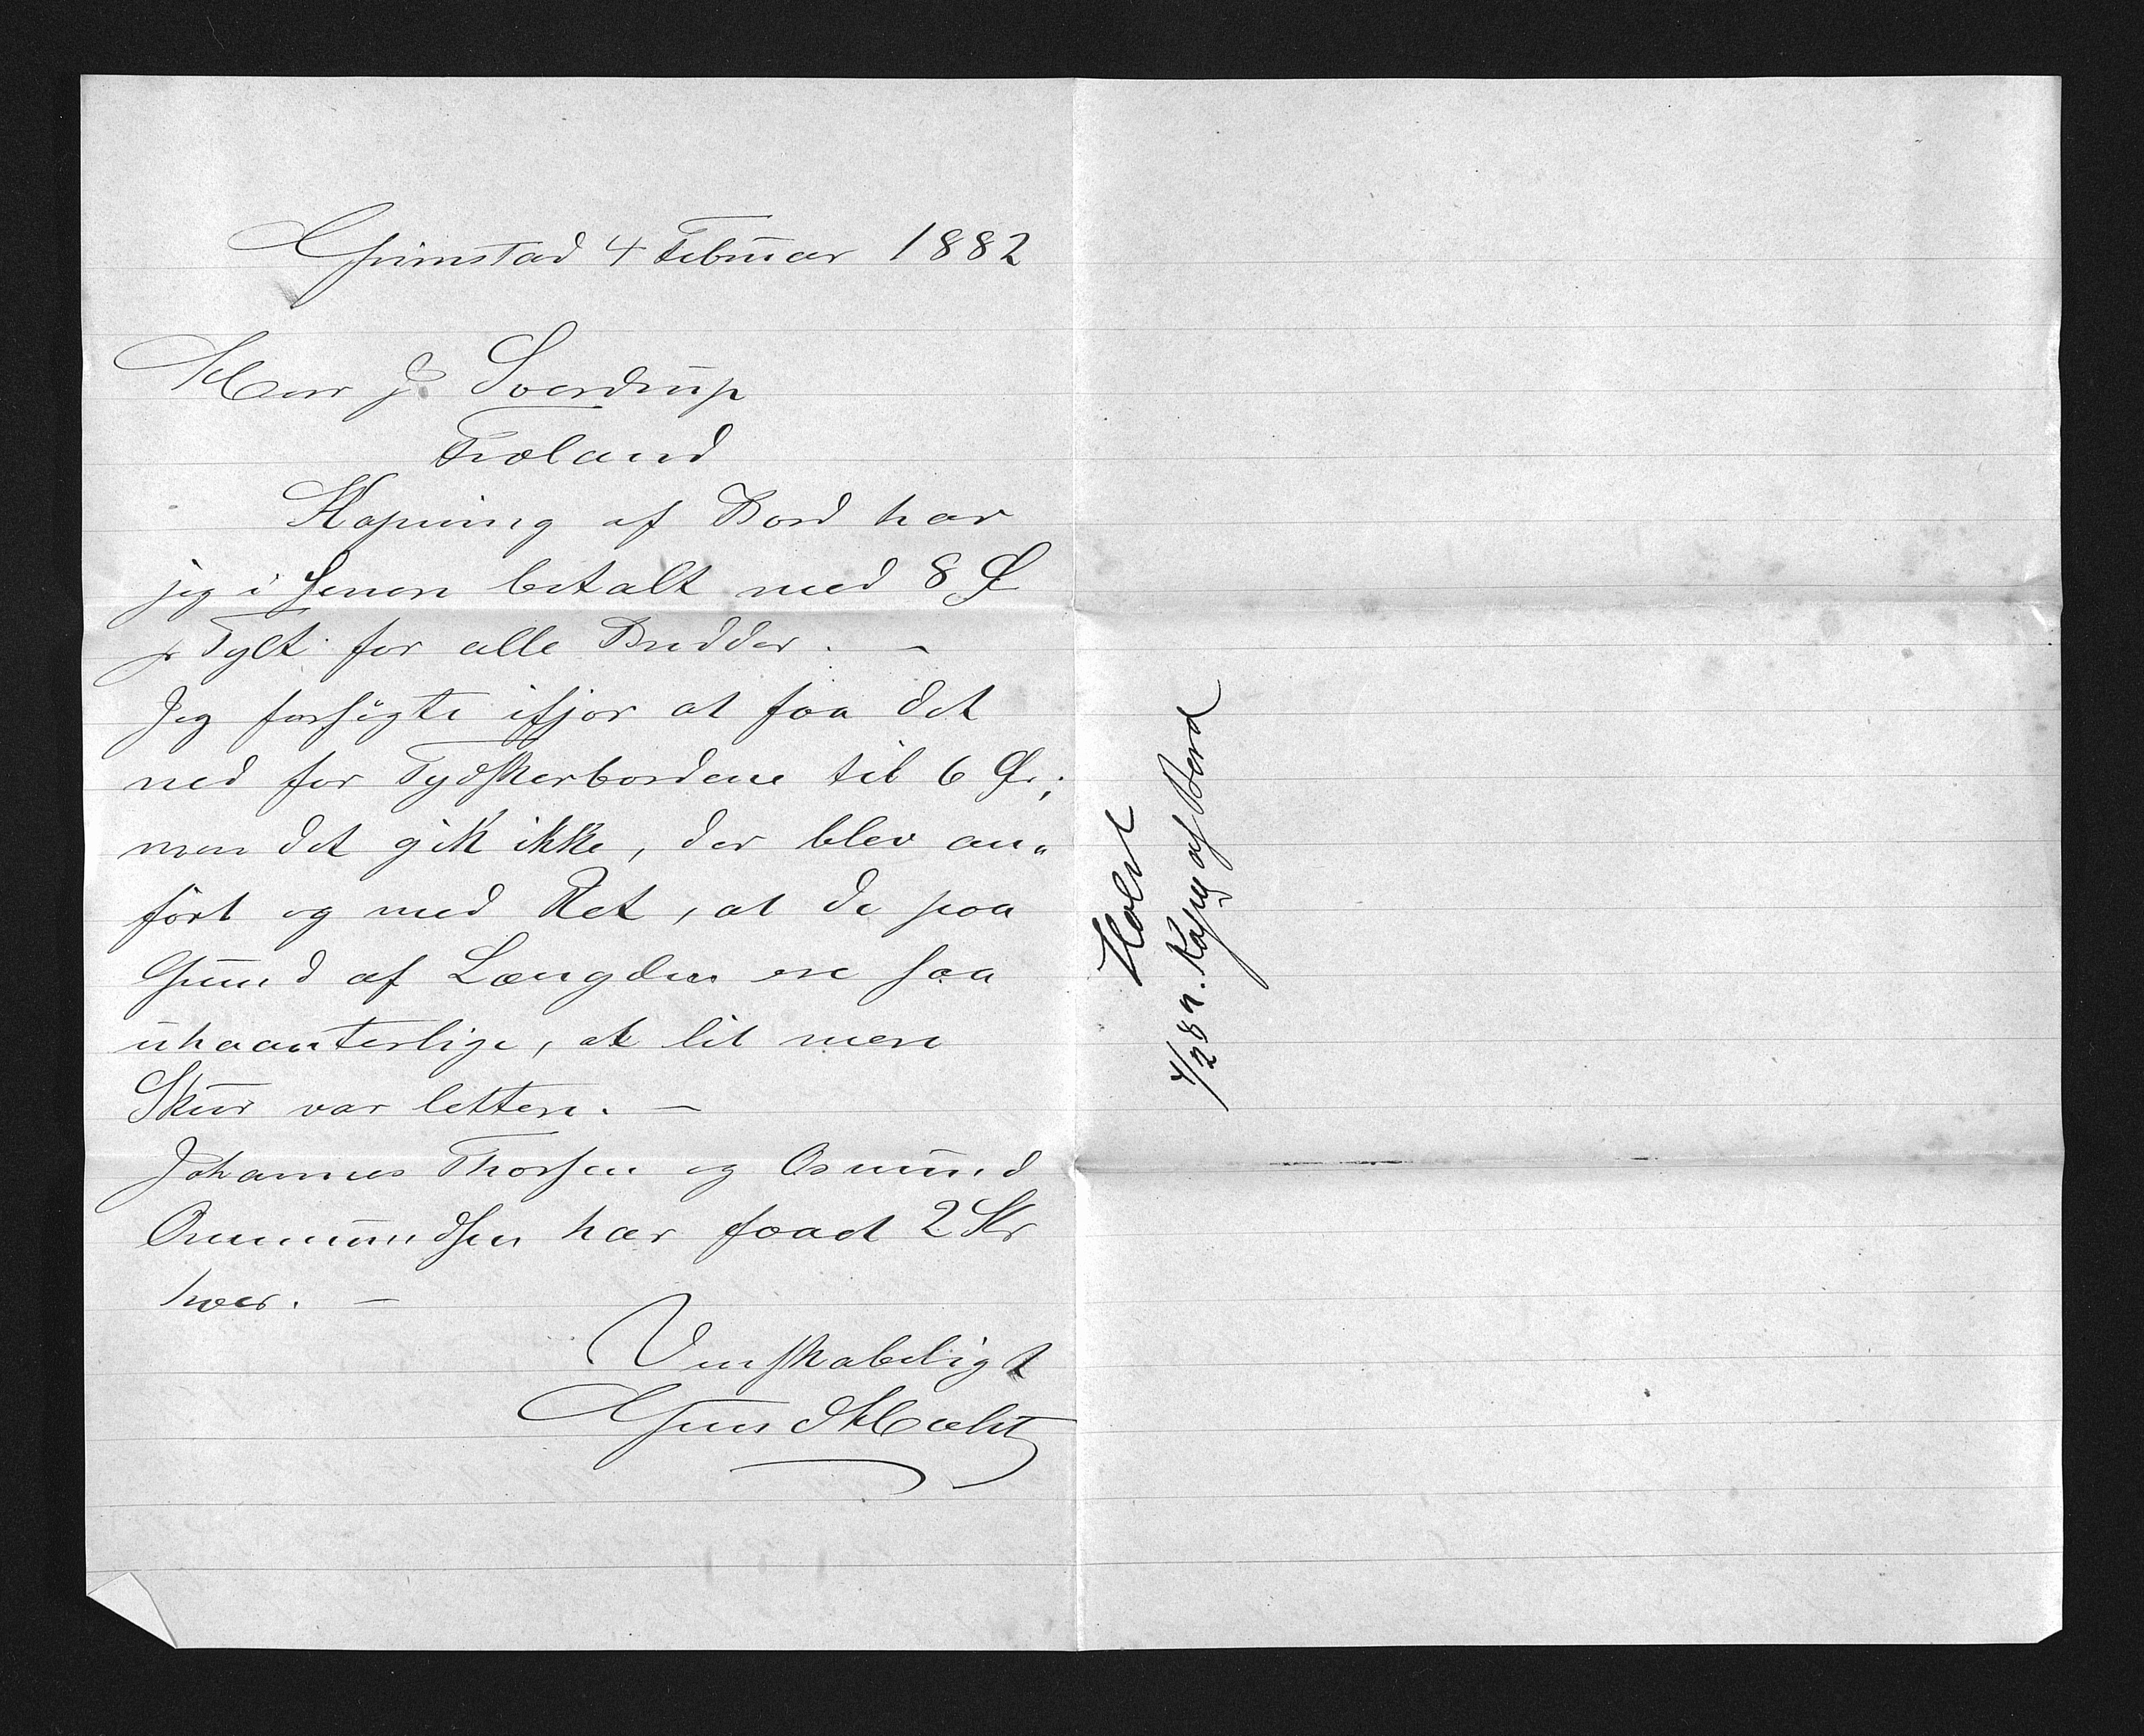 Grimstad 4 Februar 1882
Herr J. Sverdrup
Froland
Kapning af Bord har
jeg i Jenon betalt med 8 Ø
pr Tylt for alle Bredder. –
Jeg forsøgte ifjor at faa det
ned for Tydskerbordene til 6 Ør;
men det gik ikke, der blev an„
ført og med Ret, at de paa
Grund af Længden ere saa
uhaanterlige, at lit mere
Skur var lettere. –
Johannes Thorsen og Osmund
Osmundsen har faaet 2 Kr
hver. –
Venskabeligt
Gund Holst
Holst
4/2 82. Kapng af Bord